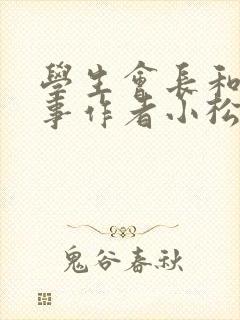 學生會長和
事作者小松
鬼谷春秋